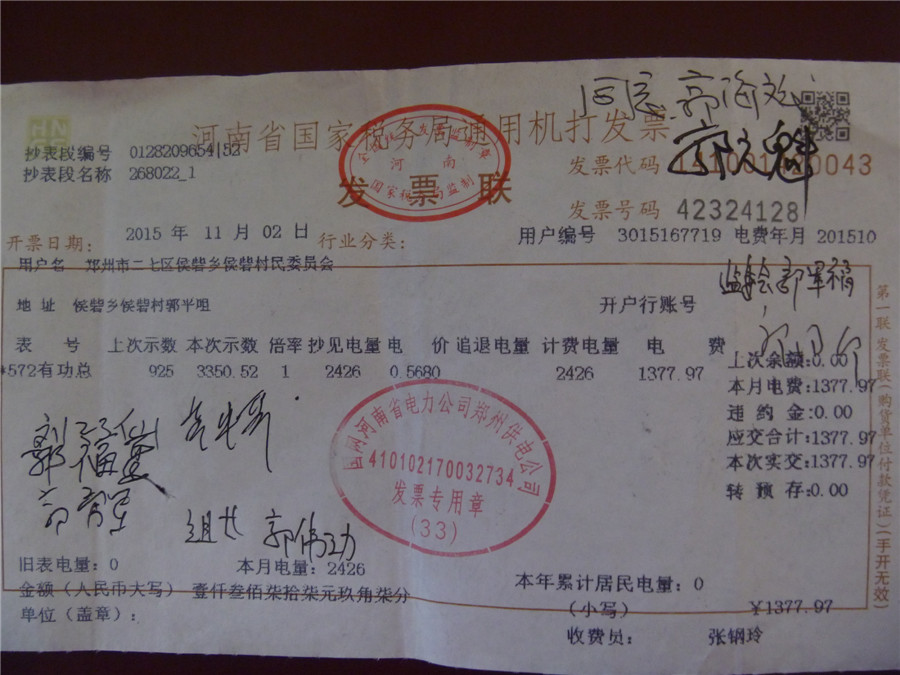 同意 郭海
HN
河南省国家税务局通用机打发票
抄表段编号 0128209654|52
抄表段名称 268022_1
河南
国家税务局监制
发票联
发票代码 0043
发票号码 42324128
开票日期： 2015 年 11 月 02 日 行业分类： 用户编号 3015167719 电费年月 201510
用户名 郑州市二七区侯砦乡侯砦村民委员会
地址 侯砦乡侯砦村郭平咀 开户行账号
表 号 上次示数 本次示数 倍率 抄见电量 电 价 追退电量 计费电量 电 费
*572有功总 925 3350.52 1 2426 0.5680 2426 1377.97
上次余额:0.00
本月电费:1377.97
违约金:0.00
应交合计:1377.97
本次实交:1377.97
转预存:0.00
第一联 发票联(购货单位付款凭证)(手开无效)
国网河南省电力公司郑州供电公司
410102170032734
发票专用章
(33)
郭福
组长 郭伟功
旧表电量：0 本月电量：2426 本年累计居民电量：0
金额（人民币大写） 壹仟叁佰柒拾柒元玖角柒分 （小写） ¥1377.97
单位（盖章）： 收费员： 张钢玲